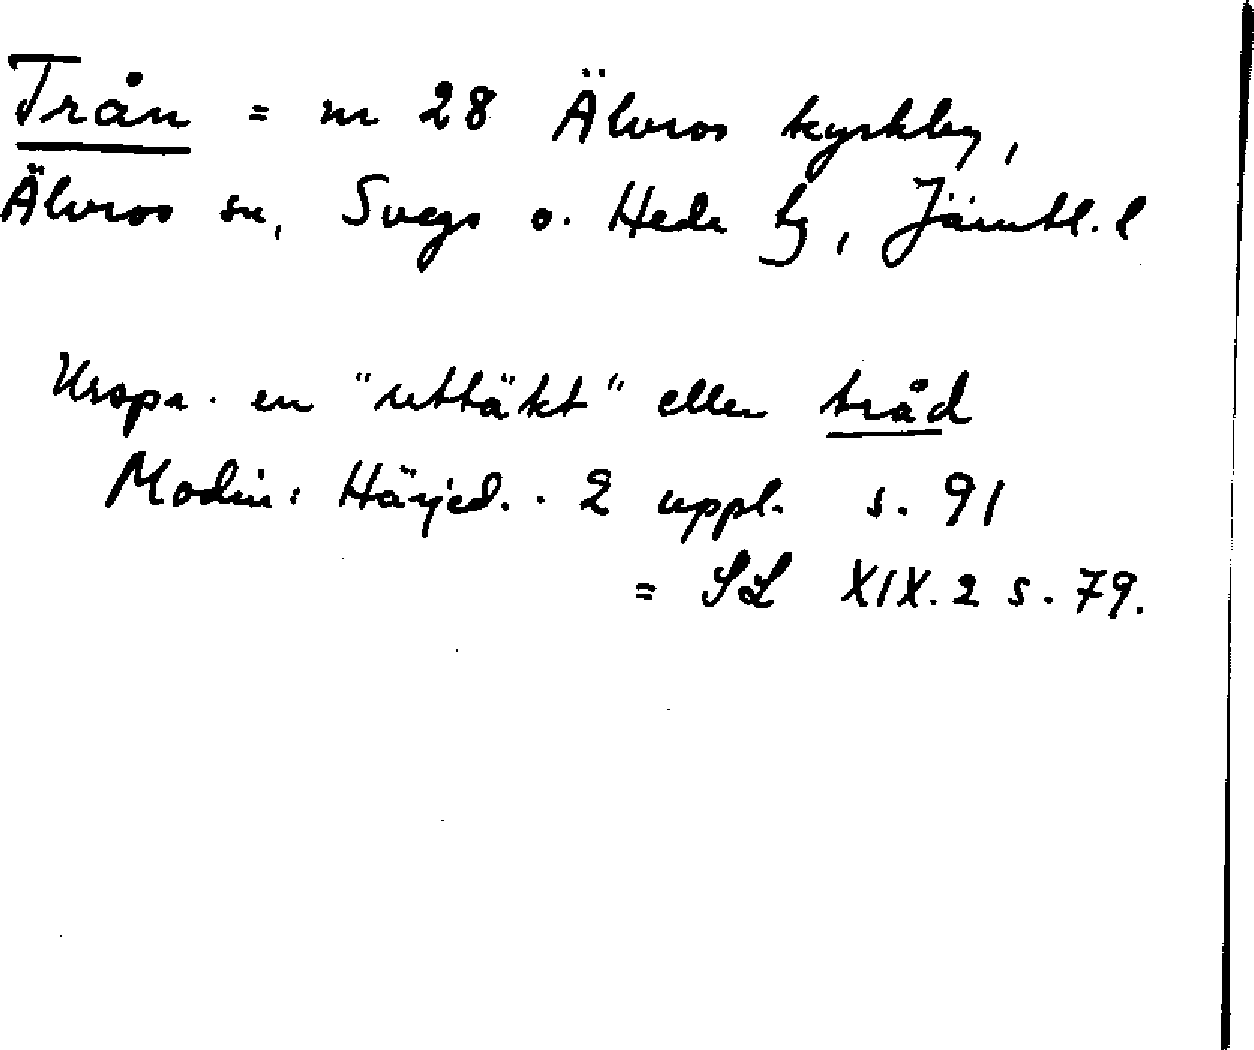 Trån = nr 28 Älvros kyrkby,
Älvros sn, Svegs o. Hede tg, Jämtl. l
Urspr. en "uttäkt" eller tråd
Modin: Härjed. . 2 uppl. s. 91
= SL XIX. 2 s. 79.